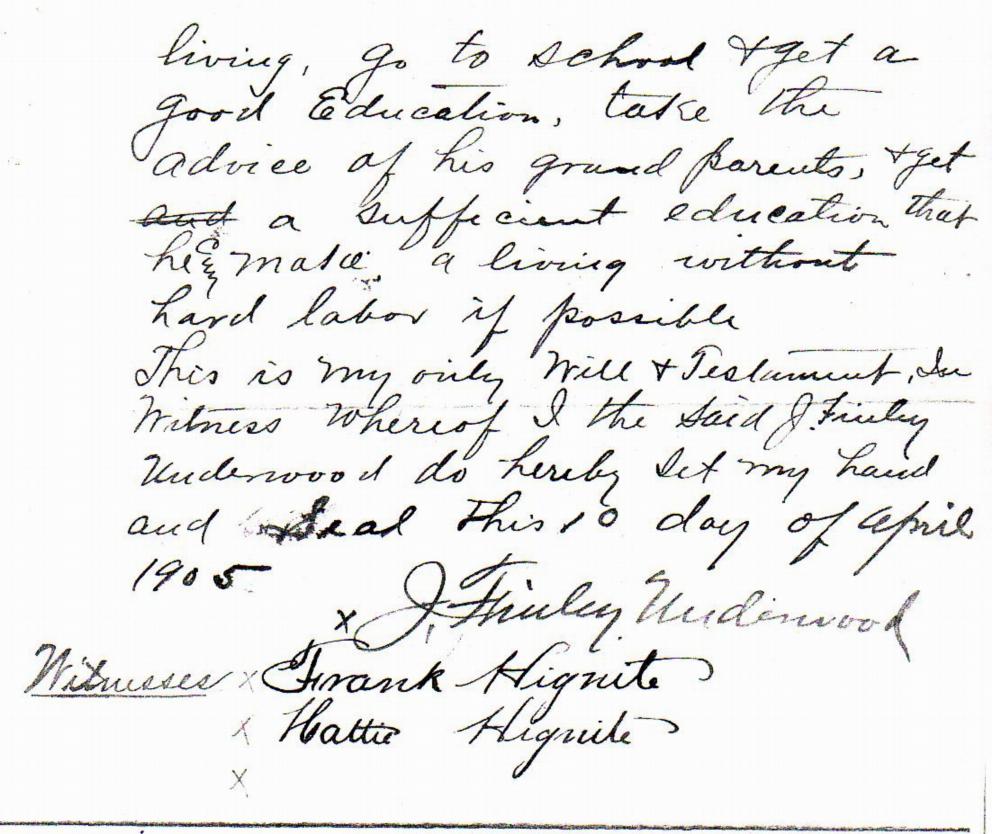 living, go to school & get a
good Education, take the
advice of his grand parents, & get
and a sufficient education that
he can make a living without
hard labor if possible
This is my only Will & Testament, In
Witness Whereof I the said J. Finley
Underwood do hereby set my hand
and Seal this 10 day of April
1905
x J. Finley Underwood
Witnesses x Frank Hignite
x Hattie Hignite
x